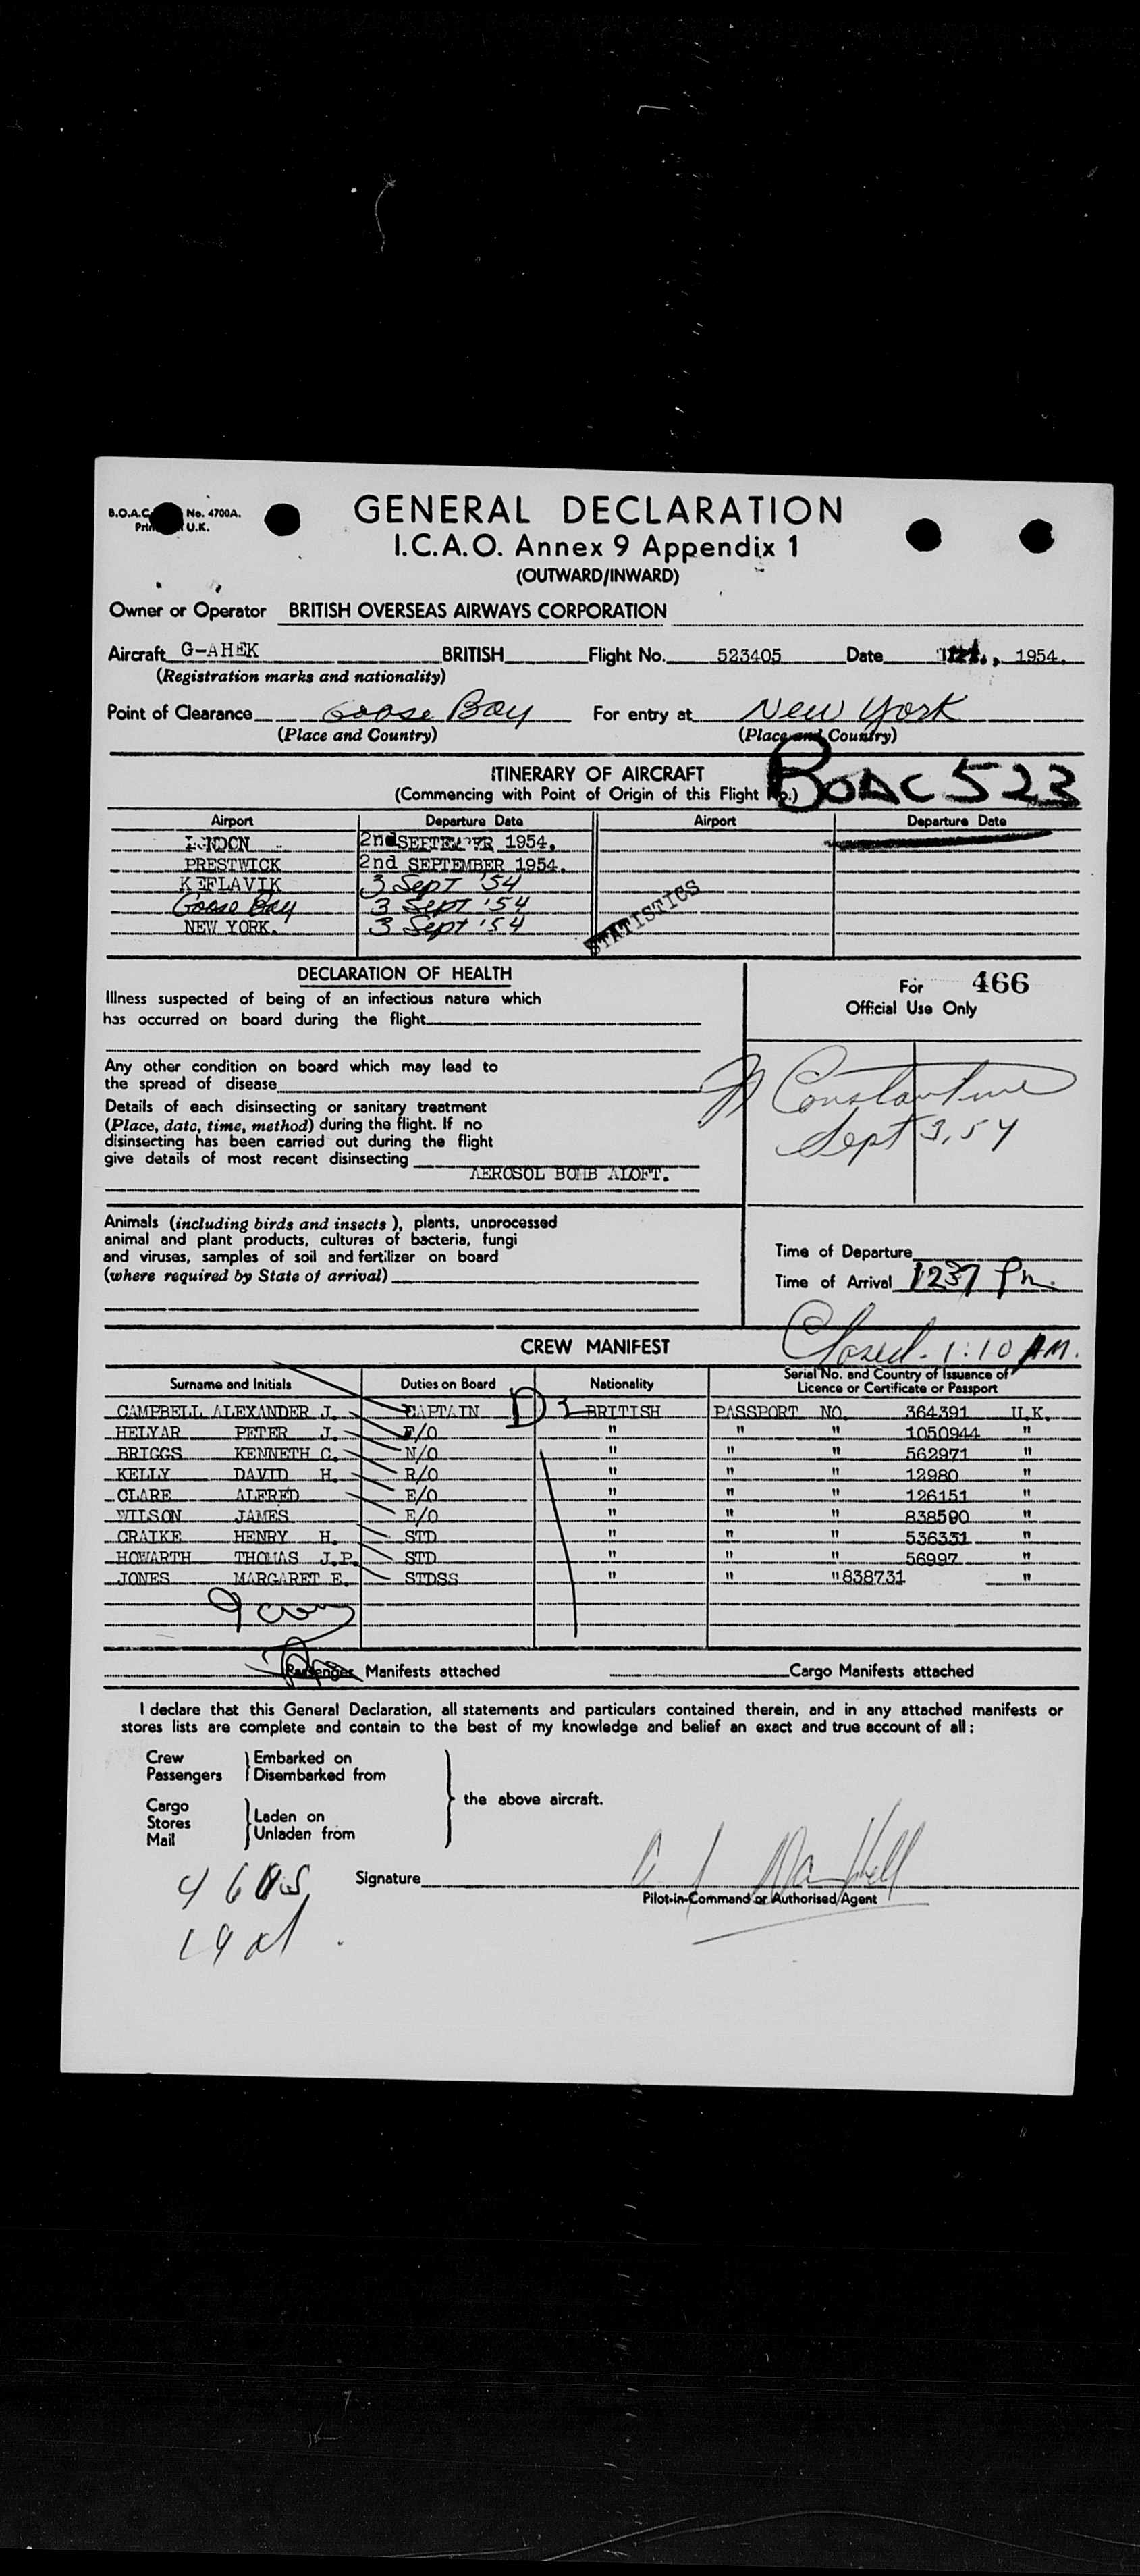 B.O.A.C. No. 4700A.
U.K.
GENERAL DECLARATION
I.C.A.O. Annex 9 Appendix 1
(OUTWARD/INWARD)
Owner or Operator BRITISH OVERSEAS AIRWAYS CORPORATION
Aircraft G-AHEK BRITISH Flight No. 523405 Date 1954.
(Registration marks and nationality)
Point of Clearance Goose Bay For entry at New York
(Place and Country) (Place and Country)
ITINERARY OF AIRCRAFT
(Commencing with Point of Origin of this Flight No.) BOAC 523
Airport Departure Date Airport Departure Date
LONDON 2nd SEPTEMBER 1954.
PRESTWICK 2nd SEPTEMBER 1954.
KEFLAVIK 3 Sept '54
Goose Bay 3 Sept '54
NEW YORK. 3 Sept '54
STATISTICS
DECLARATION OF HEALTH
Illness suspected of being of an infectious nature which
has occurred on board during the flight
Any other condition on board which may lead to
the spread of disease
Details of each disinsecting or sanitary treatment
(Place, date, time, method) during the flight. If no
disinsecting has been carried out during the flight
give details of most recent disinsecting
AEROSOL BOMB ALOFT.
Animals (including birds and insects), plants, unprocessed
animal and plant products, cultures of bacteria, fungi
and viruses, samples of soil and fertilizer on board
(where required by State of arrival)
For 466
Official Use Only
Constantine
Sept 3, 54
Time of Departure
Time of Arrival 1237 Pm.
Closed. 1:10 AM.
CREW MANIFEST
Surname and Initials Duties on Board Nationality Serial No. and Country of Issuance of
Licence or Certificate or Passport
CAMPBELL ALEXANDER J. CAPTAIN BRITISH PASSPORT NO. 364391 U.K.
HELYAR PETER J. F/O " " " 1050944 "
BRIGGS KENNETH C. N/O " " " 562971 "
KELLY DAVID H. R/O " " " 12980 "
CLARE ALFRED E/O " " " 126151 "
WILSON JAMES E/O " " " 838590 "
CRAIKE HENRY H. STD " " " 536331 "
HOWARTH THOMAS J.P. STD " " " 56997 "
JONES MARGARET E. STDSS " " " 838731 "
9 crew
Passenger Manifests attached Cargo Manifests attached
I declare that this General Declaration, all statements and particulars contained therein, and in any attached manifests or
stores lists are complete and contain to the best of my knowledge and belief an exact and true account of all:
Crew
Passengers
Embarked on
Disembarked from
Cargo
Stores
Mail
Laden on
Unladen from
the above aircraft.
Signature
Pilot-in-Command or Authorised Agent